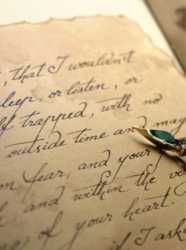 that I wouldn't
sleep, or listen, or
trapped, with no
outside time and
from fear, and your
, and within the
of your heart.
I ask